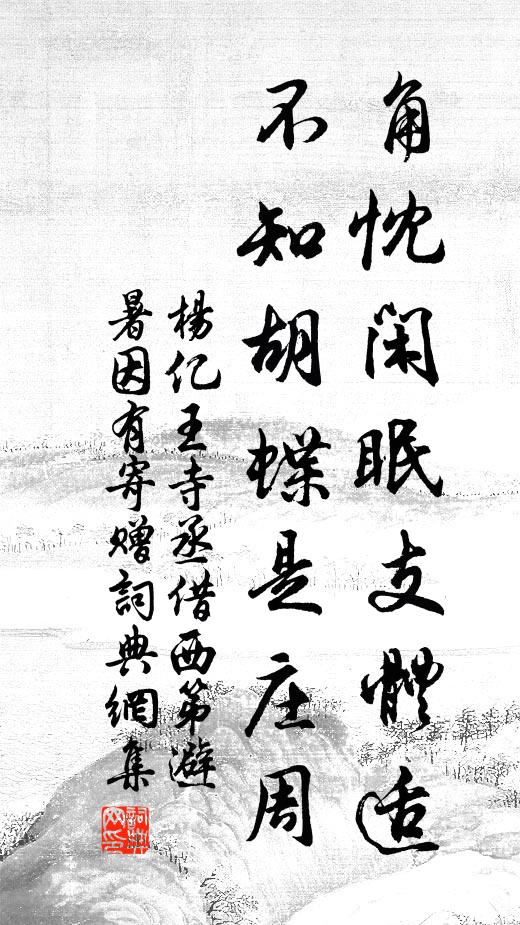 角忱闲眠支體适
不知胡蝶是庄周
楊亿王寺丞借西第避
暑因有寄贈詞典網集